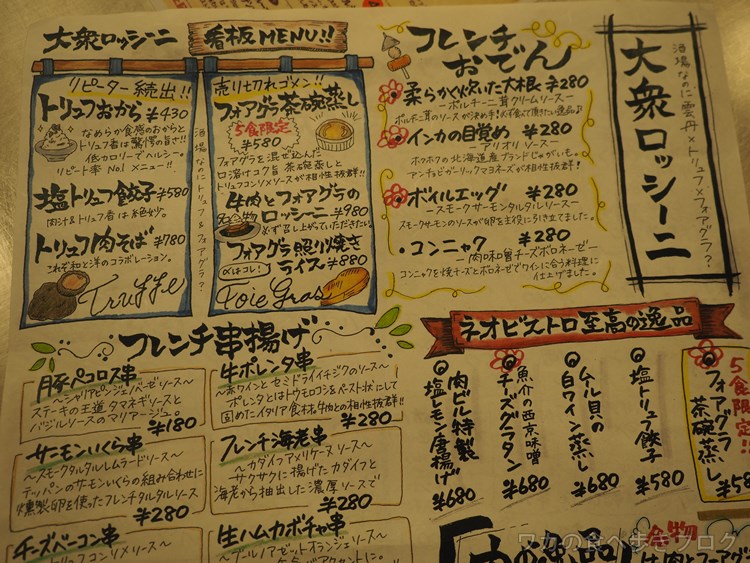 大衆ロッシーニ 看板MENU!!
リピーター続出!!
トリュフおから ¥430
なめらか食感のおからと
トリュフ香は驚愕の旨さ!!
低カロリーでヘルシー。
リピート率 No1 メニュー!!
塩トリュフ餃子 ¥580
肉汁&トリュフ香は絶妙。
トリュフ肉そば ¥780
これぞ和と洋のコラボレーション。
Truffe
酒場なのにトリュフ&フォアグラ?
売り切れゴメン!!
フォアグラ茶碗蒸し
5食限定
¥580
フォアグラを混ぜ込んだ
口溶けコク旨茶碗蒸しと
トリュフコンソメソースが相性抜群!
牛肉とフォアグラの
名物
ロッシーニ ¥980
必ず召し上がっていただきたい。
フォアグラ照り焼き
〆はコレ!
ライス ¥880
Foie Gras
フレンチ
おでん
柔らかく炊いた大根 ¥280
ーポルチーニ茸クリームソースー
インカの目覚め ¥280
ーアリオリソースー
ホクホクの北海道産ブランドじゃがいも。
アンチョビガーリックマヨネーズが相性抜群!
ボイルエッグ ¥280
ースモークサーモンタルタルソースー
スモークサーモンのソースが卵を主役に引き立てました。
・コンニャク ¥280
ー肉味噌チーズボロネーゼー
コンニャクを焼チーズとボロネーゼでワインに合う料理に
仕上げました。
酒場なのに雲丹×トリュフ×フォアグラ?
大衆ロッシーニ
フレンチ串揚げ
豚ペコロス串
〜シャリアピンジェノバーゼソース〜
ステーキの王道タマネギソースと
バジルソースのマリアージュ。
¥180
牛ポレンタ串
〜赤ワインとセミドライイチジクのソース〜
ポレンタとはトウモロコシをペースト状にして
固めたイタリア食材。牛物との相性抜群!!
¥280
サーモンいくら串
〜スモークタルタルレムラードソース〜
テッパンのサーモンいくらの組み合わせに
燻製卵を使ったフレンチタルタルソース
¥280
フレンチ海老串
〜カダイフアメリケーヌソース〜
サクサクに揚げたカダイフと
海老から抽出した濃厚ソースで
¥280
チーズベーコン串
トリュフコンソメソース〜
生ハムカボチャ串
〜ブールノアゼットオランジェソース〜
ネオビストロ至高の逸品
肉ビル特製
塩レモン唐揚げ
¥680
魚介の西京味噌
チーズグラタン
¥680
ムール貝の
白ワイン蒸し
¥680
塩トリュフ餃子
¥580
5食限定!!
フォアグラ
茶碗蒸し
¥58
名物
牛肉とフォアグ
ワカの食べ歩きブログ